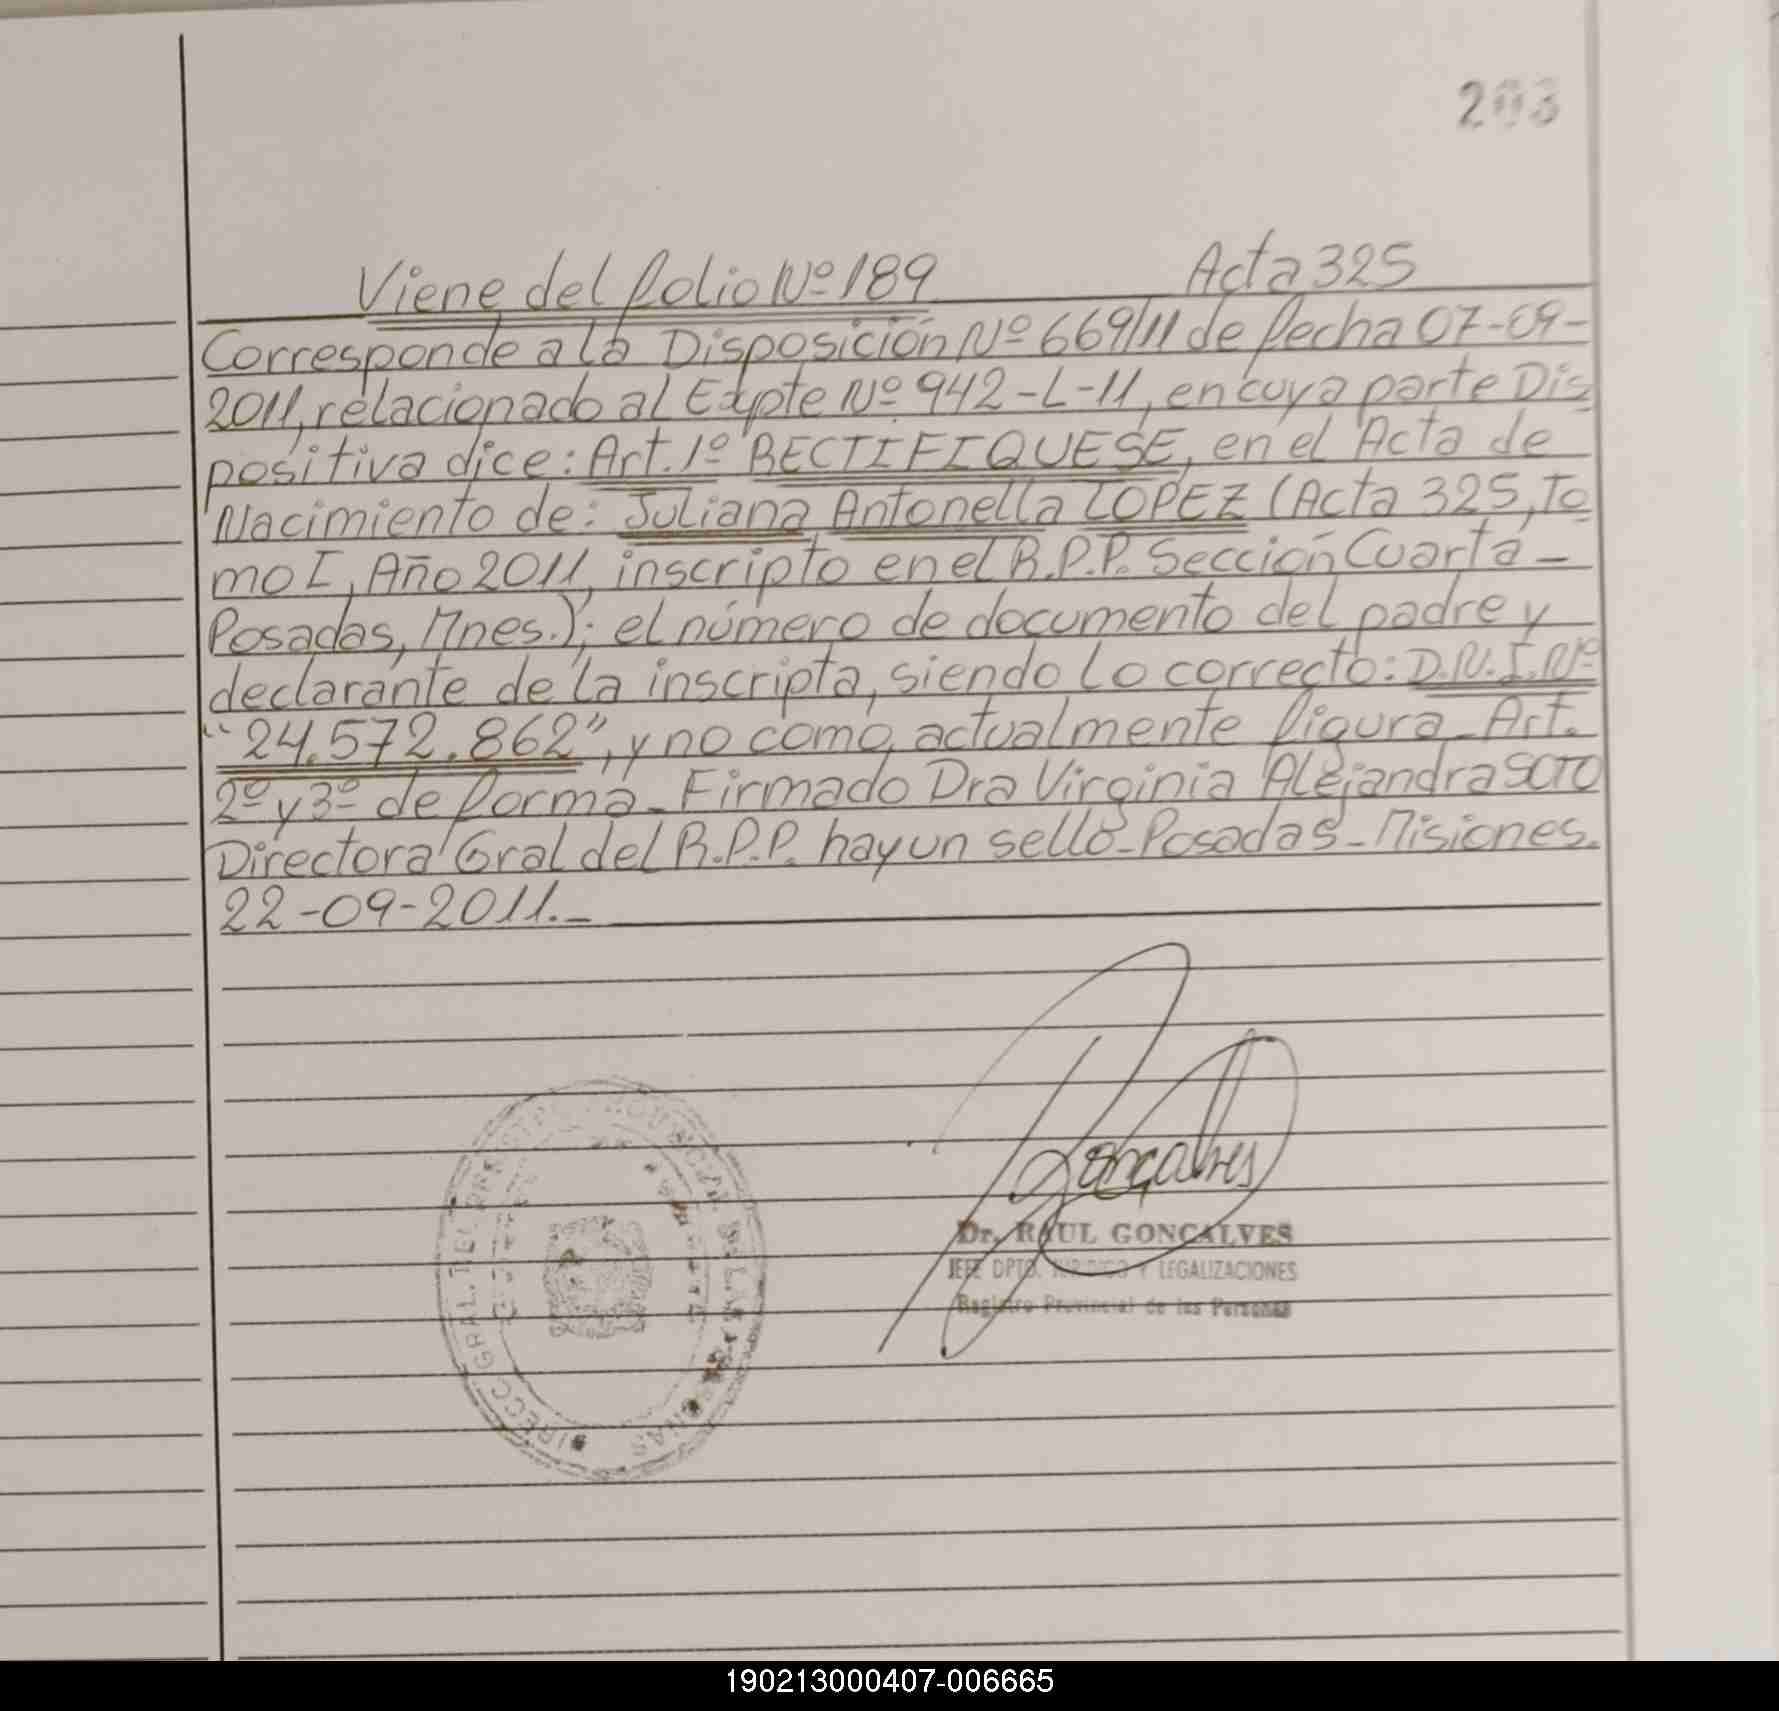 203
Viene del folio Nº 189 Acta 325
Corresponde a la Disposición Nº 669/11 de fecha 07-09-
2011, relacionado al Expte Nº 942-L-11, en cuya parte Dis
positiva dice: Art. 1º RECTIFIQUESE, en el Acta de
Nacimiento de: Juliana Antonella LOPEZ (Acta 325, To
mo I, Año 2011, inscripto en el R.P.P. Sección Cuarta -
Posadas, Mnes.); el número de documento del padre y
declarante de la inscripta, siendo lo correcto: D.N.I. Nº
"24.572.862", y no como actualmente figura - Art.
2º y 3º de forma - Firmado Dra Virginia Alejandra SOTO
Directora Gral del R.P.P. hay un sello - Posadas - Misiones.
22-09-2011.-
Gonçalves
Dr. RAUL GONCALVES
JEFE DPTO. JURIDICO Y LEGALIZACIONES
Registro Provincial de las Personas
DIRECC. GRAL. DEL
190213000407-006665